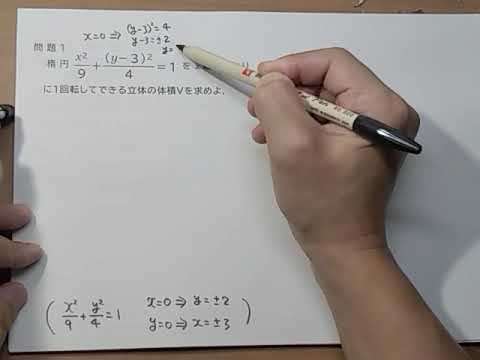 x=0 ⇒ (y-3)²=4
y-3=±2
y=
問題1
楕円 x²/9 + (y-3)²/4 = 1 を
に1回転してできる立体の体積Vを求めよ.
( x²/9 + y²/4 = 1 x=0 ⇒ y=±2
y=0 ⇒ x=±3 )